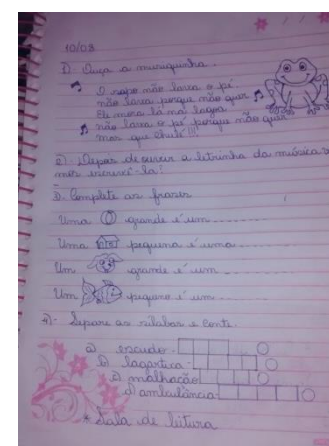 10/03
1) Ouça a musiquinha.
O sapo não lava o pé
não lava porque não quer
Ele mora lá na lagoa
não lava o pé porque não quer
mas que chulé!!!
2)- Depois de ouvir a letrinha da música
escrevê-la!
3)- Complete as frases
Uma grande é um
Uma pequena é uma
Um grande é um
Um pequeno é um
4)- Separe as sílabas e conte.
a) escudo
b) lagartixa
c) malhação
d) ambulância
* Sala de leitura